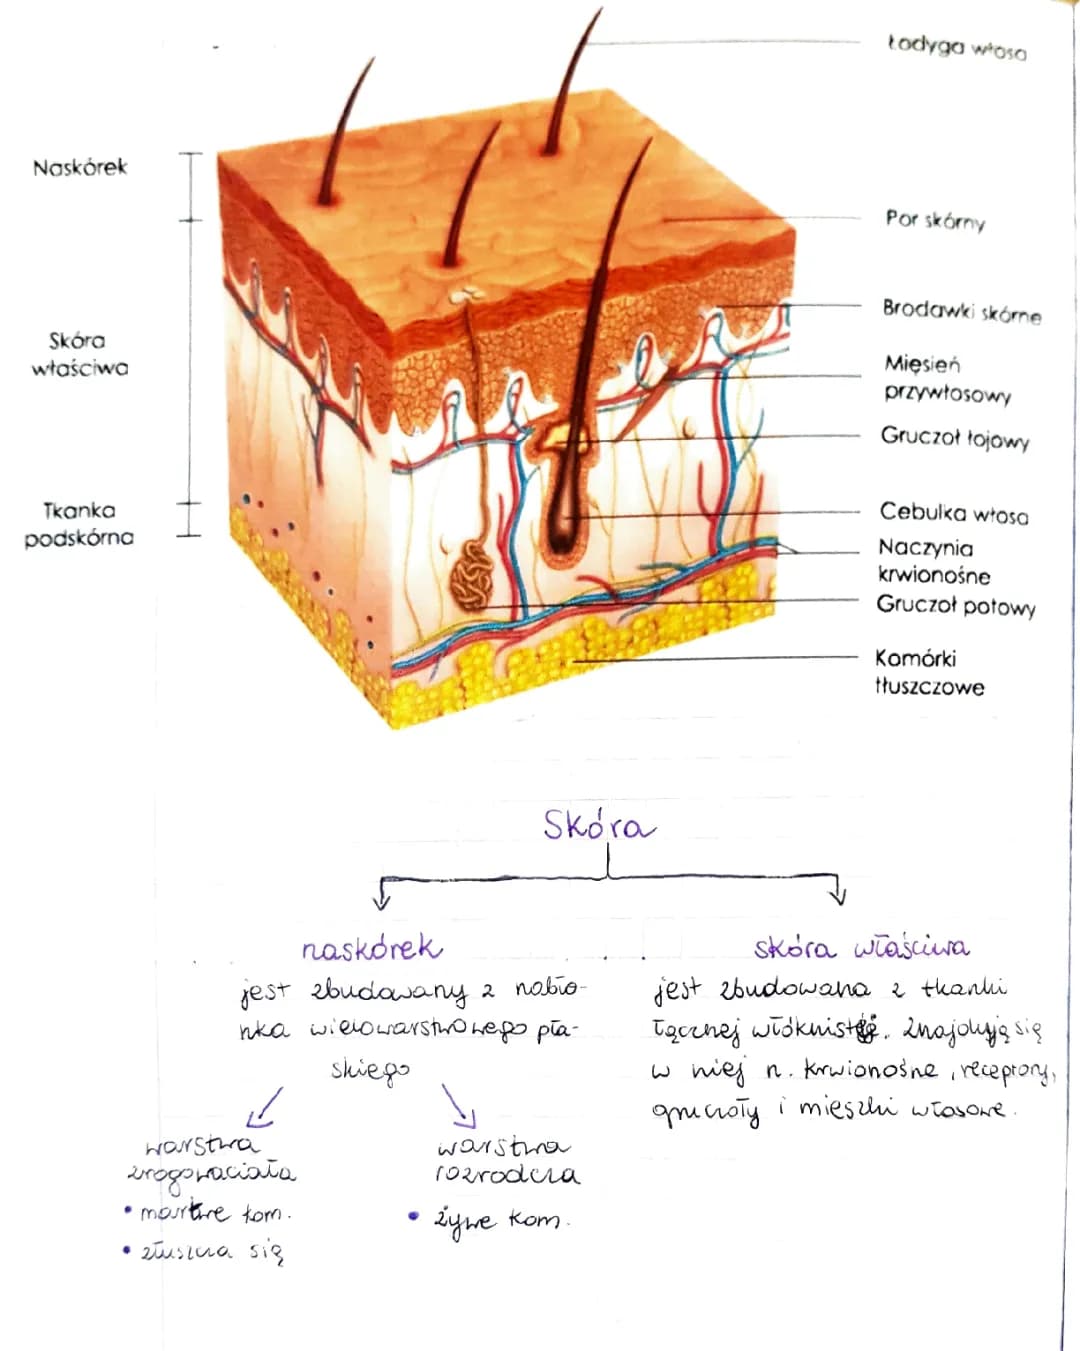 Łodyga włosa
Naskórek
Por skórny
Brodawki skórne
Skóra
właściwa
Mięsień
przywłosowy
Gruczoł łojowy
Tkanka
podskórna
Cebulka włosa
Naczynia
krwionośne
Gruczoł potowy
Komórki
tłuszczowe
Skóra
naskórek
jest zbudowany z nabło-
nka wielowarstwowego pła-
skiego
skóra właściwa
jest zbudowana z tkanki
łącznej włóknistej. Znajdują się
w niej n. krwionośne, receptory,
gruczoły i mieszki włosowe.
warstwa
zrogowaciała
• martwe kom.
• złuszcza się
warstwa
rozrodcza
• żywe kom.